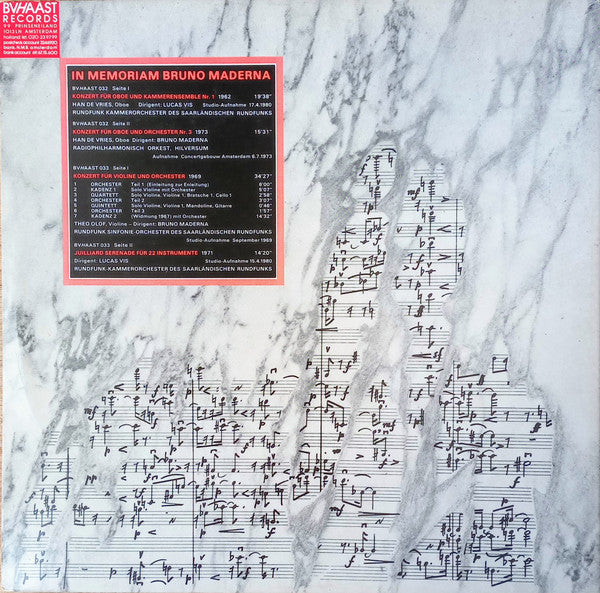 BVHAAST
RECORDS
99 PRINSENEILAND
1013 LN AMSTERDAM
holland tel. 020 239799
bank. N.M.B. amsterdam
IN MEMORIAM BRUNO MADERNA
BVHAAST 032 Seite I
KONZERT FÜR OBOE UND KAMMERENSEMBLE Nr. 1 1962 19'38"
HAN DE VRIES, Oboe Dirigent: LUCAS VIS Studio-Aufnahme 17.4.1980
RUNDFUNK KAMMERORCHESTER DES SAARLÄNDISCHEN RUNDFUNKS
BVHAAST 032 Seite II
KONZERT FÜR OBOE UND ORCHESTER Nr. 3 1973 15'31"
HAN DE VRIES, Oboe Dirigent: BRUNO MADERNA
RADIOPHILHARMONISCH ORKEST, HILVERSUM
Aufnahme Concertgebouw Amsterdam 6.7.1973
BVHAAST 033 Seite I
KONZERT FÜR VIOLINE UND ORCHESTER 1969 34'27"
1 ORCHESTER Teil 1 (Einleitung zur Enleitung) 6'00"
2 KADENZ 1 Solo Violine mit Orchester 5'07"
3 QUARTETT Solo Violine, Violine 1, Bratsche 1, Cello 1 2'58"
4 ORCHESTER Teil 2 3'07"
5 QUINTETT Solo Violine, Violine 1, Mandoline, Gitarre 0'46"
6 ORCHESTER Teil 3 1'57"
7 KADENZ 2 (Widmung 1967) mit Orchester 14'32"
THEO OLOF, Violine – Dirigent: BRUNO MADERNA
RUNDFUNK SINFONIE-ORCHESTER DES SAARLÄNDISCHEN RUNDFUNKS
Studio-Aufnahme September 1969
BVHAAST 033 Seite II
JUILLIARD SERENADE FÜR 22 INSTRUMENTE 1971 14'20"
Dirigent: LUCAS VIS Studio-Aufnahme 15.4.1980
RUNDFUNK-KAMMERORCHESTER DES SAARLÄNDISCHEN RUNDFUNKS